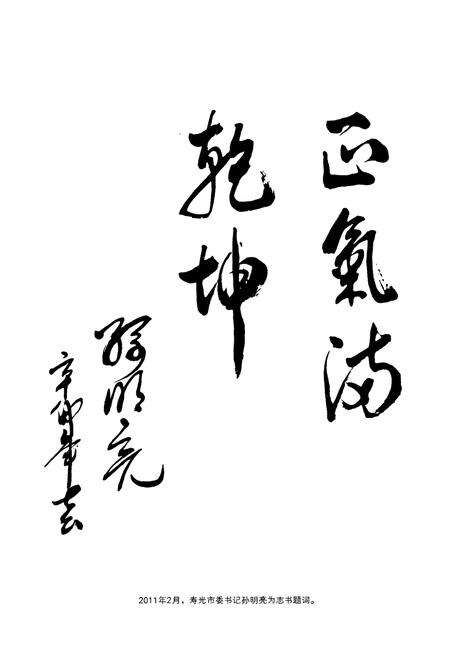 正氣滿
乾坤
孫明亮
辛卯年
2011年2月，寿光市委书记孙明亮为志书题词。